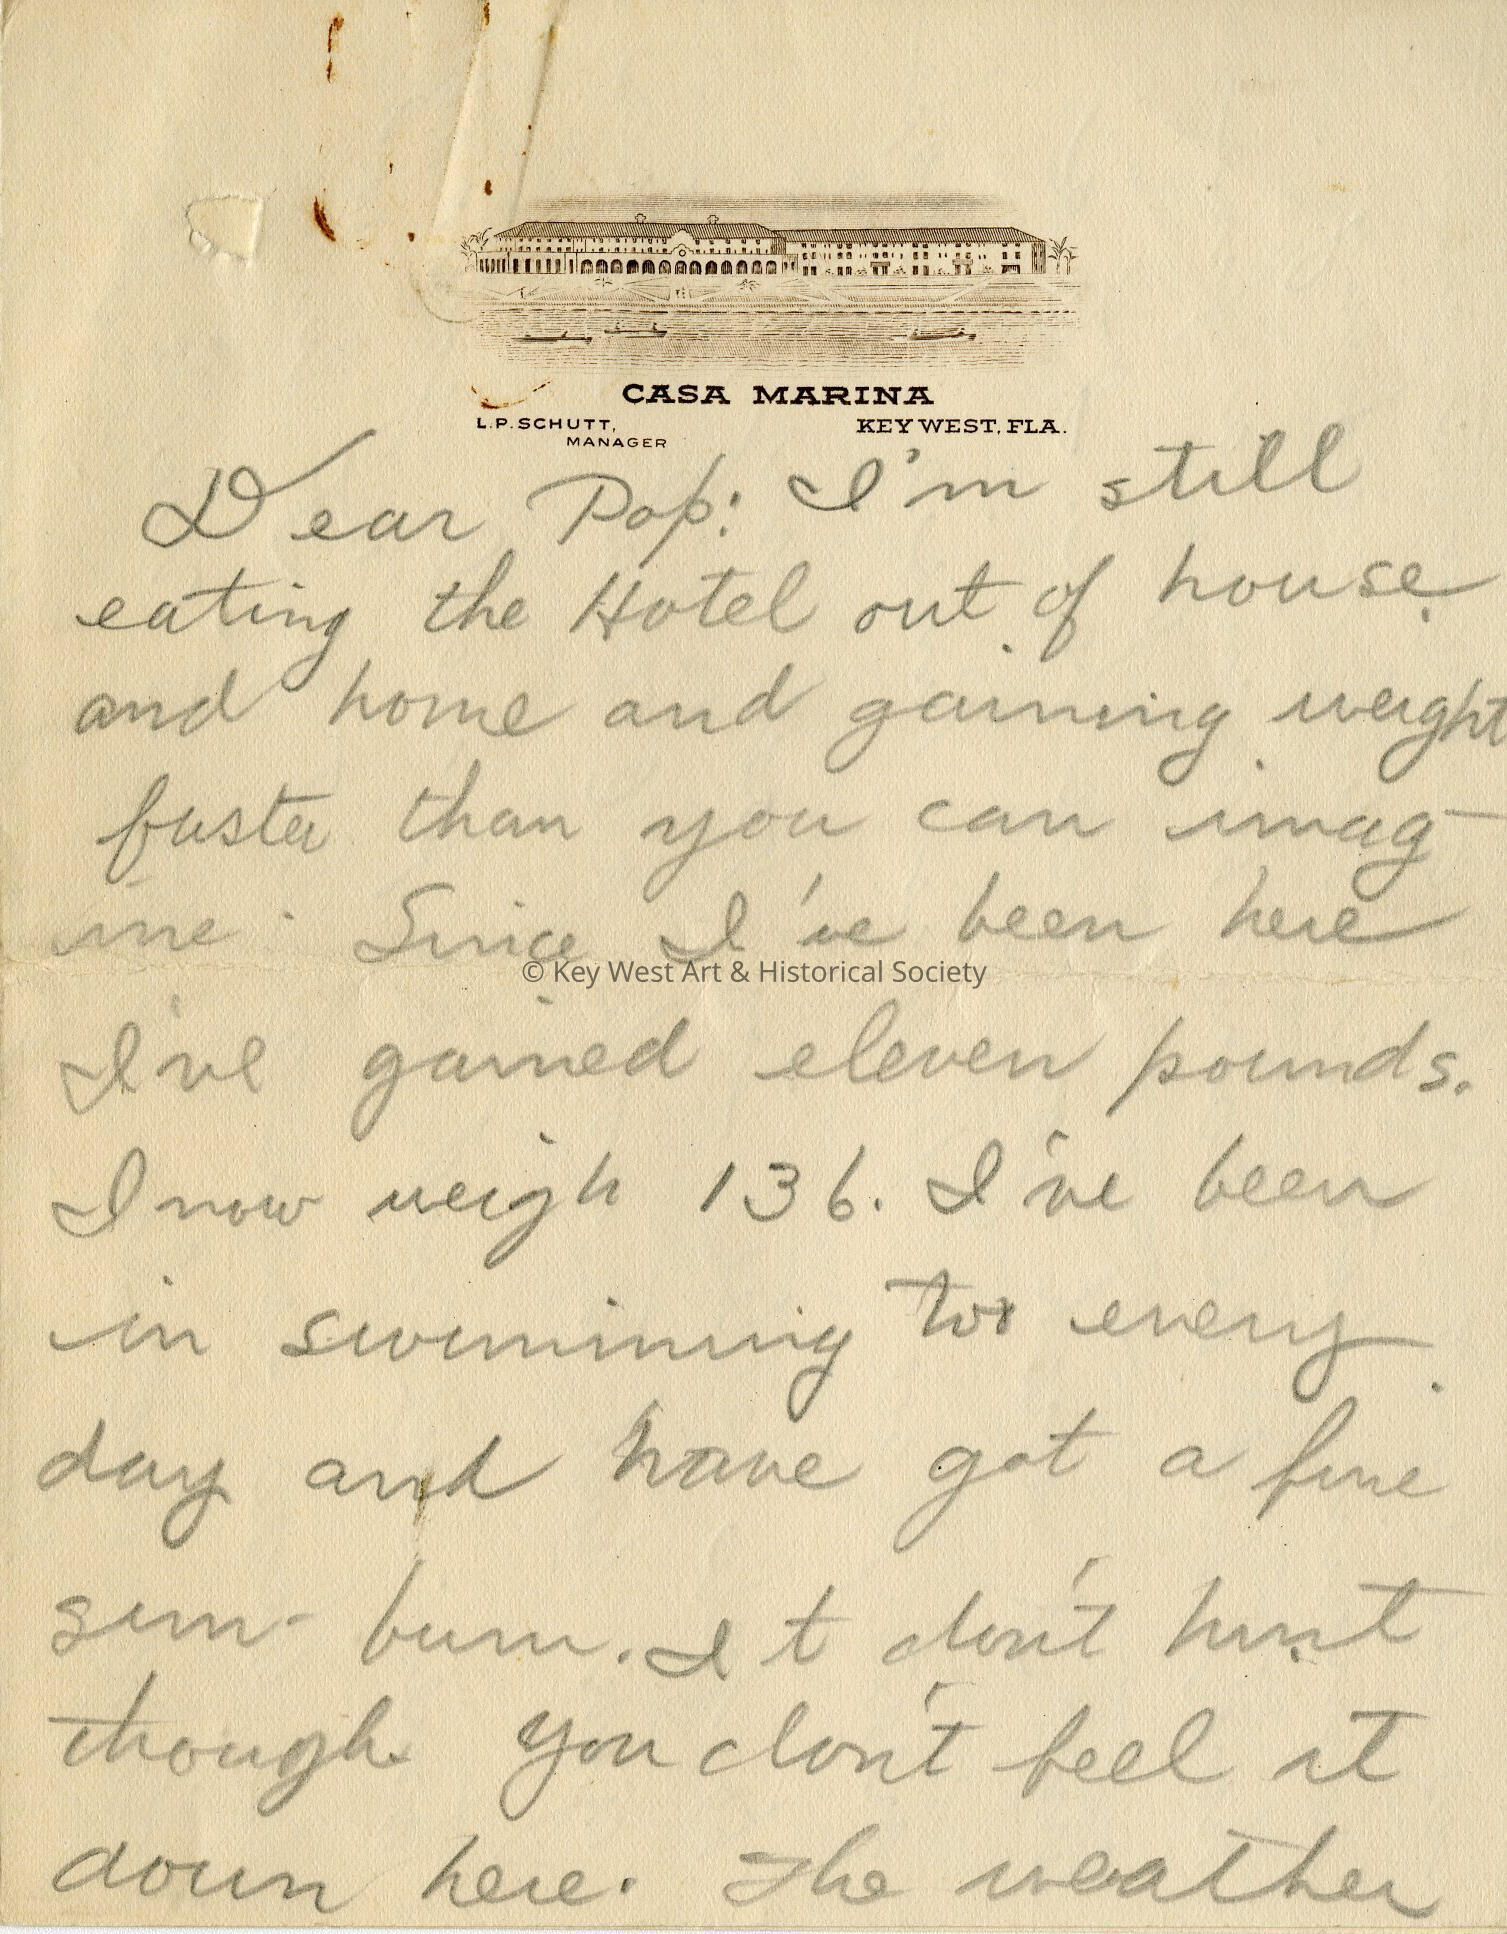 CASA MARINA
L.P. SCHUTT,
MANAGER
KEY WEST, FLA.
Dear Pop: I'm still
eating the Hotel out of house
and home and gaining weight
faster than you can imag-
ine. Since I've been here
© Key West Art & Historical Society
I've gained eleven pounds.
I now weigh 136. I've been
in swimming too every
day and have got a fine
sun-burn. It don't hurt
though. You don't feel it
down here. The weather